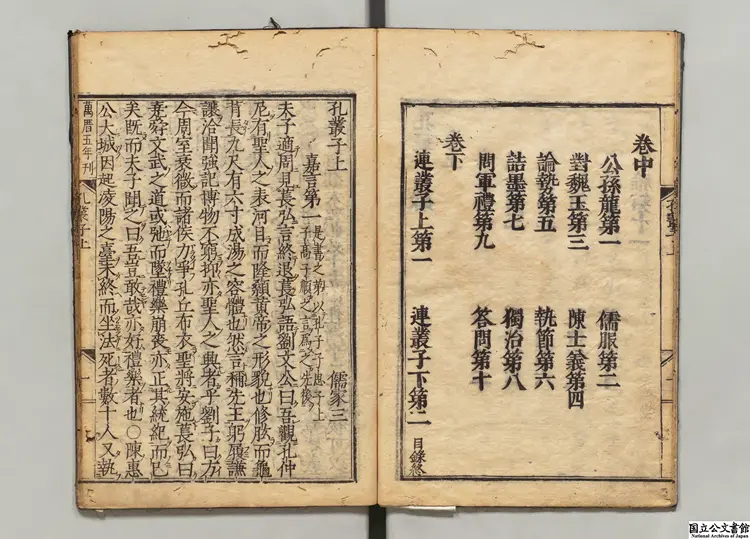 卷中
公孫龍第一　儒服第二
對魏王第三　陳士義第四
論勢第五　執節第六
詰墨第七　獨治第八
問軍禮第九　答問第十
卷下
連叢子上第一　連叢子下第二
目錄終
孔叢子上
儒家三
嘉言第一
是書之第以孔子子思子上
子高子順之言為之先後
夫子適周見萇弘言終退萇弘語劉文公曰吾觀孔仲
尼有聖人之表河目而隆顙黃帝之形貌也修肱而龜
背長九尺有六寸成湯之容體也然言稱先王躬履謙
讓洽聞強記博物不窮抑亦聖人之興者乎劉子曰方
今周室衰微而諸侯力爭孔丘布衣聖將安施萇弘曰
堯舜文武之道或弛而墜禮樂崩喪亦正其統紀而已
矣既而夫子聞之曰吾豈敢哉亦好禮樂者也○陳惠
公大城因起凌陽之臺未終而坐法死者數十人又執
萬曆五年刊
孔叢子上
一
国立公文書館
National Archives of Japan